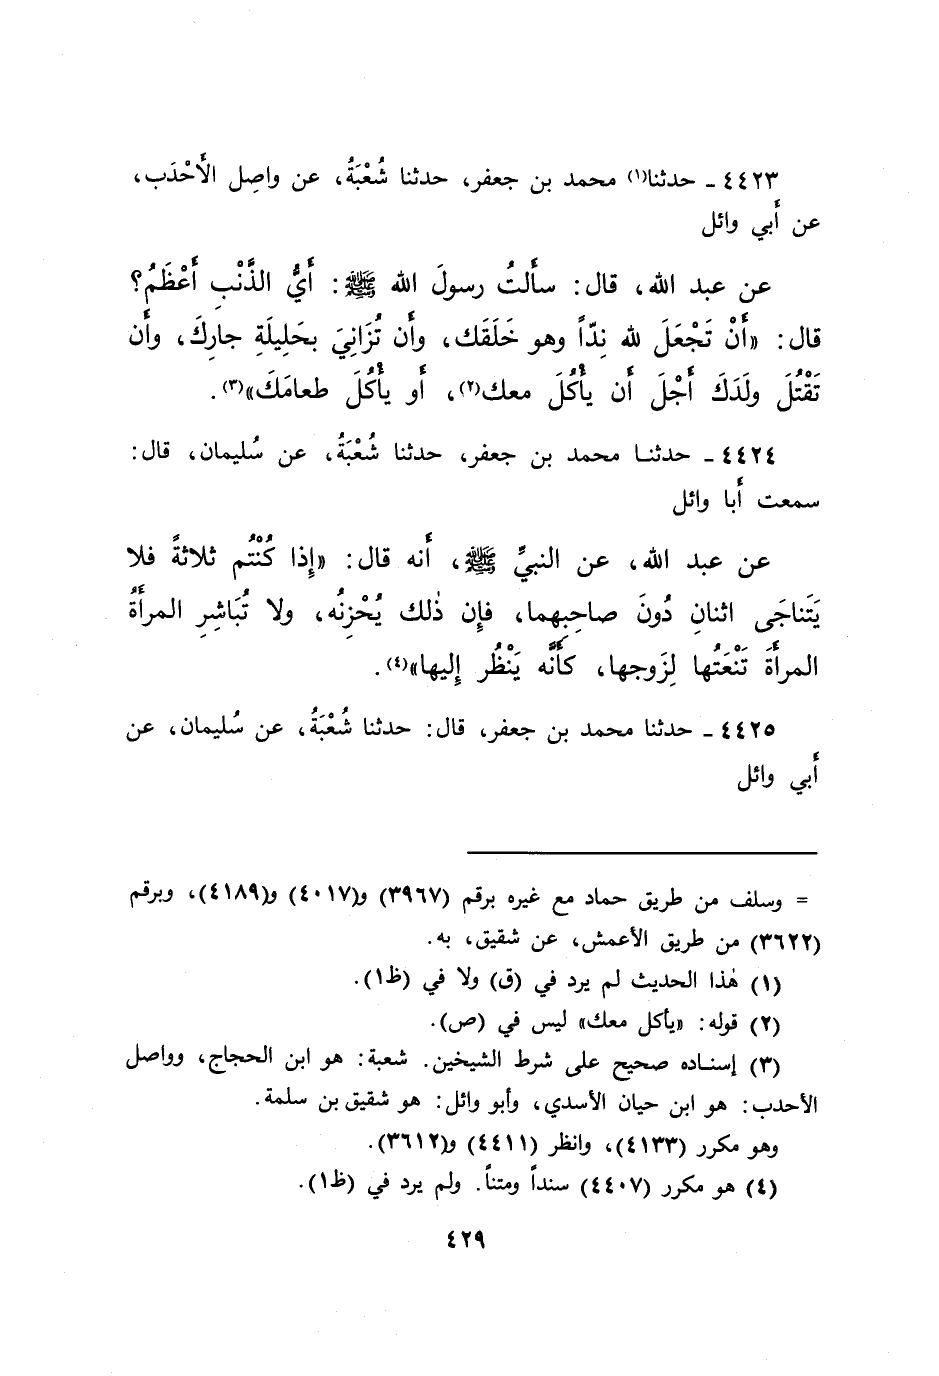 ٤٤٢٣ ـ حدثنا(١) محمد بن جعفر، حدثنا شُعْبَةُ، عن واصِل الأَحْدَب،
عن أَبي وائل
عن عبد الله، قال: سأَلتُ رسولَ الله ﷺ: أَيُّ الذَّنْبِ أَعْظَمُ؟
قال: «أَنْ تَجْعَلَ لله نِدّاً وهو خَلَقَك، وأَن تُزَانِيَ بحَلِيلَةِ جارِكَ، وأَن
تَقْتُلَ ولَدَكَ أَجْلَ أَن يأْكُلَ معك(٢)، أَو يأْكُلَ طعامَكَ»(٣).
٤٤٢٤ ـ حدثنا محمد بن جعفر، حدثنا شُعْبَةُ، عن سُليمان، قال:
سمعت أَبا وائل
عن عبد الله، عن النبيِّ ﷺ، أَنه قال: «إِذا كُنْتُم ثلاثةً فلا
يَتَناجَى اثنانِ دُونَ صاحِبِهما، فإِن ذٰلك يُحْزِنُه، ولا تُبَاشِرِ المرأَةُ
المرأَةَ تَنْعَتُها لِزَوجها، كأَنَّه يَنْظُر إِليها»(٤).
٤٤٢٥ ـ حدثنا محمد بن جعفر، قال: حدثنا شُعْبَةُ، عن سُليمان، عن
أَبي وائل
= وسلف من طريق حماد مع غيره برقم (٣٩٦٧) و(٤٠١٧) و(٤١٨٩)، وبرقم
(٣٦٢٢) من طريق الأعمش، عن شقيق، به.
(١) هٰذا الحديث لم يرد في (ق) ولا في (ظ١).
(٢) قوله: «يأكل معك» ليس في (ص).
(٣) إسناده صحيح على شرط الشيخين. شعبة: هو ابن الحجاج، وواصل
الأحدب: هو ابن حيان الأسدي، وأبو وائل: هو شقيق بن سلمة.
وهو مكرر (٤١٣٣)، وانظر (٤٤١١) و(٣٦١٢).
(٤) هو مكرر (٤٤٠٧) سنداً ومتناً. ولم يرد في (ظ١).
٤٢٩